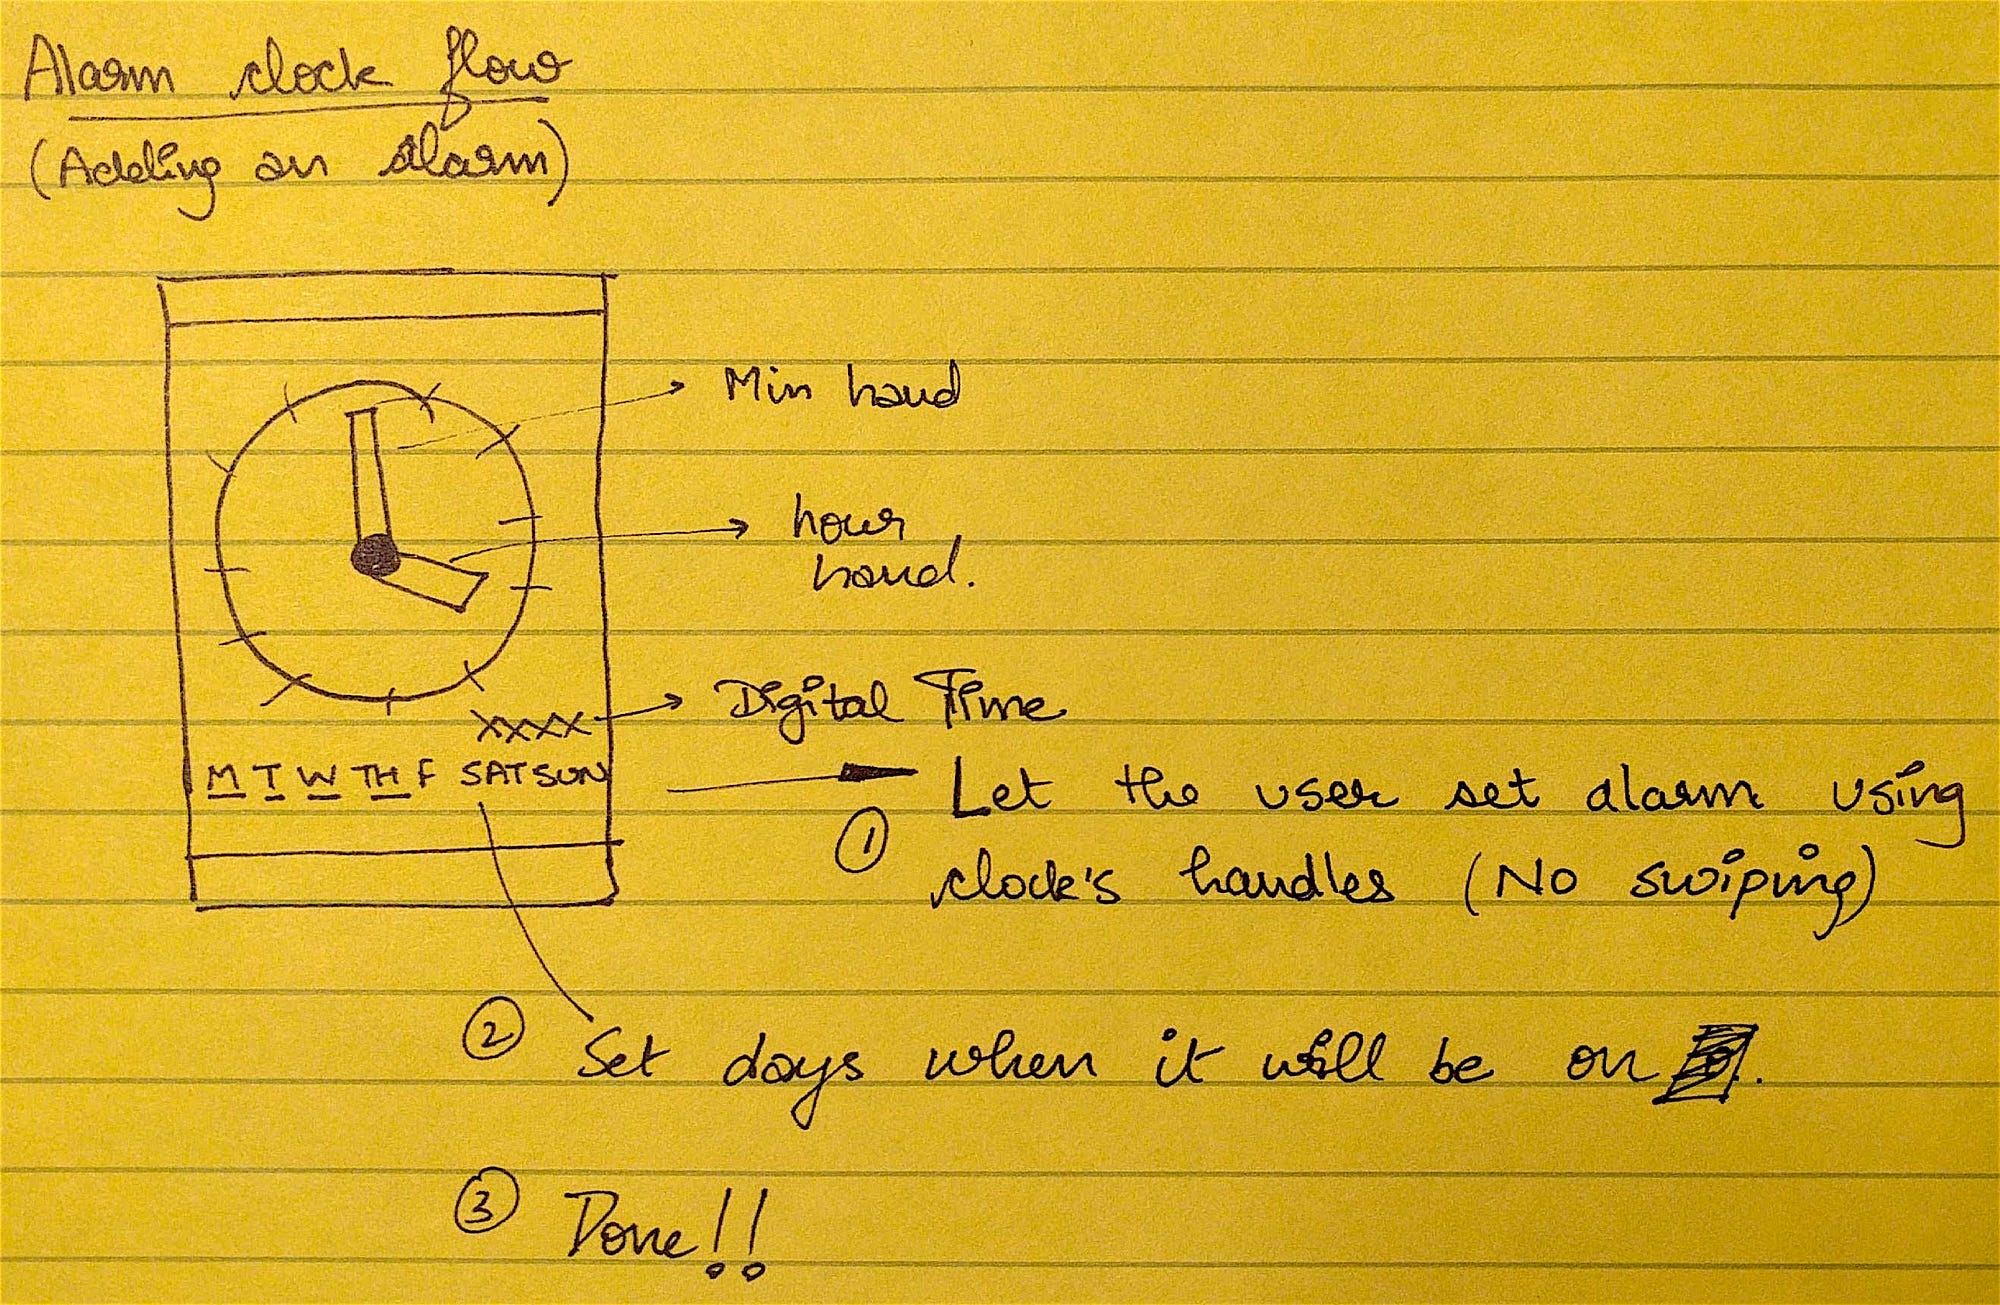 Alarm clock flow
(Adding an alarm)
Min hand
hour
hand.
Digital Time
XXXX
M T W TH F SAT SUN
① Let the user set alarm using
clock's handles (No swiping)
② Set days when it will be on .
③ Done!!